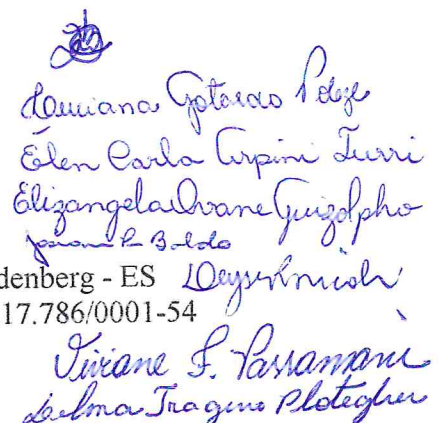 Luciana Gotardo Polez
Élen Carla Arpini Turri
Elizangela Ivane Guizolpho
Josiane R Boldo
denberg - ES
17.786/0001-54
Viviane F. Passamani
Delma Tragino Plotegher